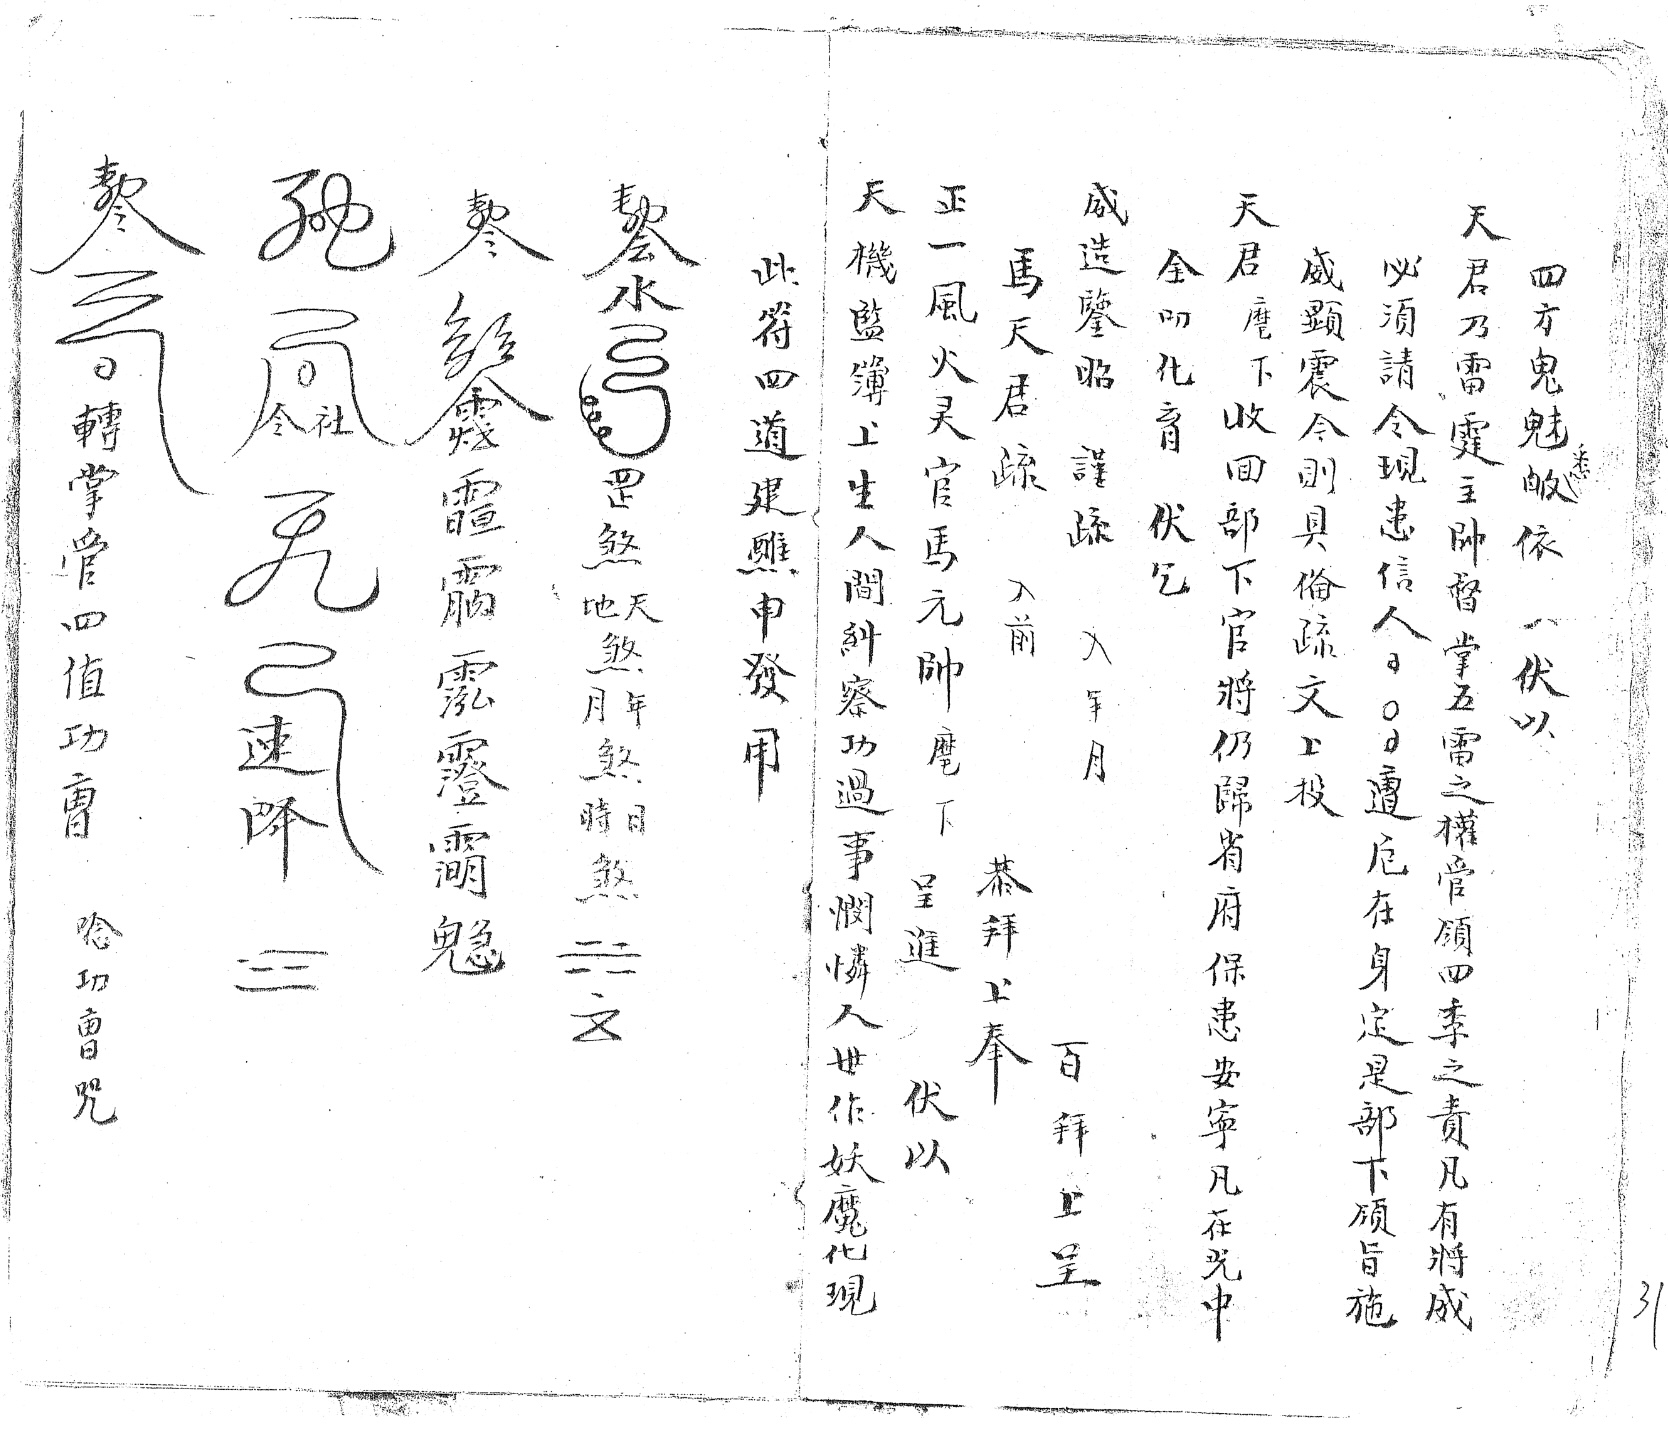 四方鬼魅皈悉依 伏以
天君乃雷霆主帥督掌五雷之權管領四季之責凡有將成
必須請令現患信人 遭厄在身定是部下領旨施
威顯震令則具俻疏文上投
天君麾下收回部下官將仍歸省府保患安寧凡在光中
全叨化育 伏乞
威造鑒昭 謹疏 入年月 百拜上呈
馬天君疏 入前 恭拜上奉
正一風火灵官馬元帥麾下 呈進 伏以
天機監簿上生人間糾察功過事憫憐人世作妖魔化現
此符四道建醮申發用
水 罡煞天地煞年月煞日時煞
魒
令社 速降
轉掌管四值功曹 唸功曹咒
31